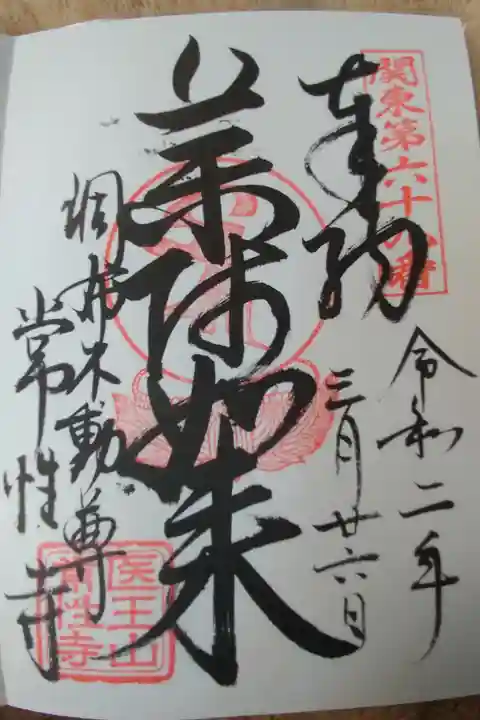 関東第六十六番
奉納
令和二年
三月廿六日
薬師如来
調布不動尊
常性寺
医王山
常性寺